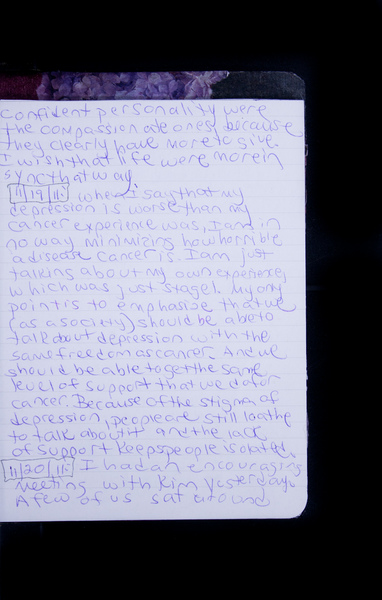 confident personality were
the compassionate ones, because
they clearly have more to give.
I wish that life were more in
sync that way.
11/19/11: when I say that my
depression is worse than my
cancer experience was, I am in
no way minimizing how horrible
a disease cancer is. I am just
talking about my own experience,
which was just stage 1. My only
point is to emphasize that we
(as a society) should be able to
talk about depression with the
same freedom as cancer. And we
should be able to get the same
level of support that we do for
cancer. Because of the stigma of
depression, people are still loathe
to talk about it and the lack
of support keeps people isolated.
11/20/11: I had an encouraging
meeting with Kim yesterday.
A few of us sat around